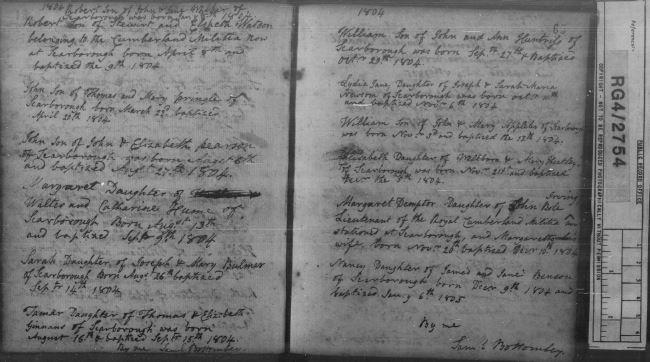 1804
Robert Son of John &
Scarborough was born
Robert Son of Stewart and Elspeth Watson
belonging to the Cumberland Militia now
at Scarborough born April 8th and
baptized the 9th 1804
John Son of Thomas and Mary Pringle of
Scarborough born March 23d baptized
April 20th 1804
John Son of John & Elizabeth Pearson
of Scarborough was born Augst 6th
and baptized Augst 27th 1804.
Margaret Daughter of
Walter and Catherine Hume of
Scarborough Born Augst 13th
and baptized Septr 9th 1804
Sarah Daughter of Joseph & Mary Bulmer
of Scarborough Born Augst 26th baptized
Septr 14th 1804
Tamar Daughter of Thomas & Elizabeth
of Scarborough was born
August 16th & baptized Septr 15th 1804.
By me Saml Bottomley
1804
William Son of John and Ann of
Scarborough was born Septr 27th & Baptized
Octr 29th 1804
Lydia Jane Daughter of Joseph & Sarah Maria
Newsom of Scarborough was born
and baptized Novr 6th 1804
William Son of John & Mary Appleby of Scarbor
was born Novr 3d and baptized the 12th 1804.
Elisabeth Daughter of & Mary
of Scarborough was born Novr 21st and baptized
Decr the 8th 1804.
Irving
Margaret Demptor Daughter of John Bell
Lieutenant of the Royal Cumberland Militia
stationed at Scarborough, and Margaret
wife, born Novr 20th baptized Decr 10th 1804
Nancy Daughter of James and Jane Benson
of Scarborough born Decr 9th 1804 and
baptized Jany 6th 1805
By me
Saml Bottomley
Reference:-
RG4/2754
PUBLIC RECORD OFFICE
COPYRIGHT - NOT TO BE REPRODUCED PHOTOGRAPHICALLY WITHOUT PERMISSION